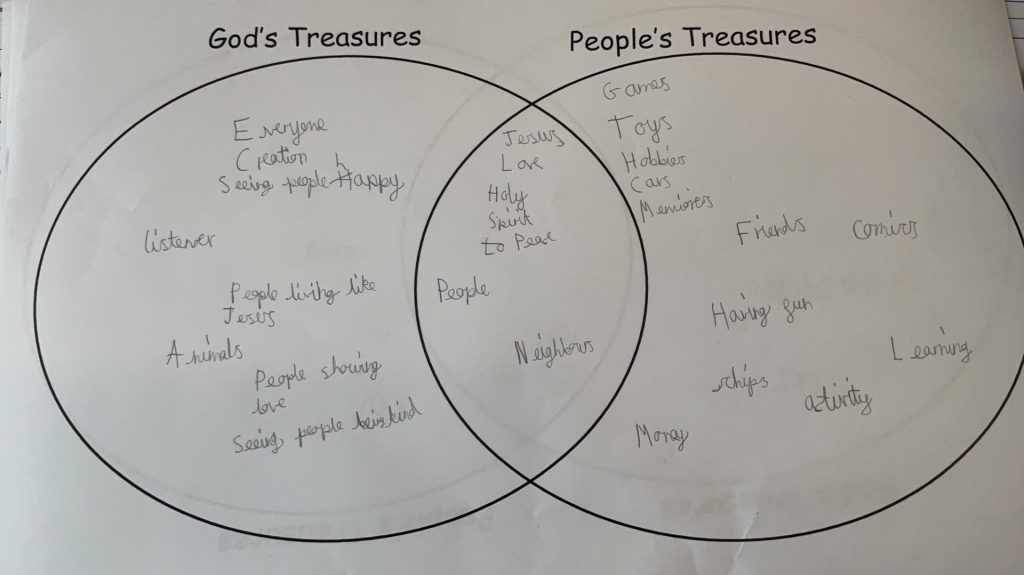 God's Treasures
People's Treasures
Everyone
Creation
h
Seeing people Happy
listener
People living like
Jesus
Animals
People showing
love
Seeing people being kind
Jesus
Love
Holy
Spirit
to Peace
People
Neighbours
Games
Toys
Hobbies
Cars
Friends
Comics
Having fun
Learning
chips
Money